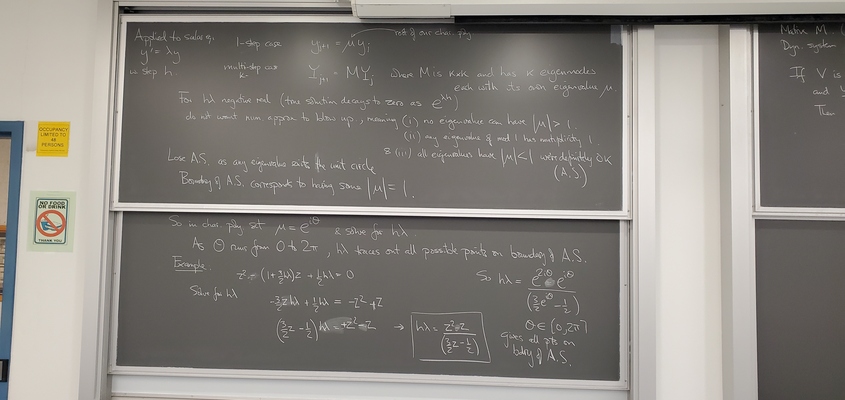 Applied to scalar eq.
y' = λy
w step h.
1-step case y_{j+1} = μ y_j
root of our char. poly
multi-step case
k-
Y_{j+1} = M Y_j where M is k×k and has k eigenmodes
each with its own eigenvalue μ
For hλ negative real (true solution decays to zero as e^{λh})
do not want num approx to blow up, meaning (i) no eigenvalue can have |μ| > 1.
(ii) any eigenvalue of mod 1 has multiplicity 1.
& (iii) all eigenvalues have |μ| < 1 we're definitely OK
(A.S)
Lose A.S. as any eigenvalue exits the unit circle
Boundary of A.S. corresponds to having some |μ| = 1.
So in char. poly set μ = e^{iθ} & solve for hλ.
As θ runs from 0 to 2π, hλ traces out all possible points on boundary of A.S.
Example
z² - (1 + 3/2 hλ) z + 1/2 hλ = 0
Solve for hλ
-3/2 z hλ + 1/2 hλ = -z² + z
(3/2 z - 1/2) hλ = +z² - z → hλ = (z² - z) / (3/2 z - 1/2)
So hλ = (e^{2iθ} - e^{iθ}) / (3/2 e^{iθ} - 1/2)
θ ∈ [0, 2π]
gives all pts on
bdry of A.S.
Matrix M
Dyn. system
If V is
and
Then
OCCUPANCY
LIMITED TO
48
PERSONS
NO FOOD
OR DRINK
THANK YOU